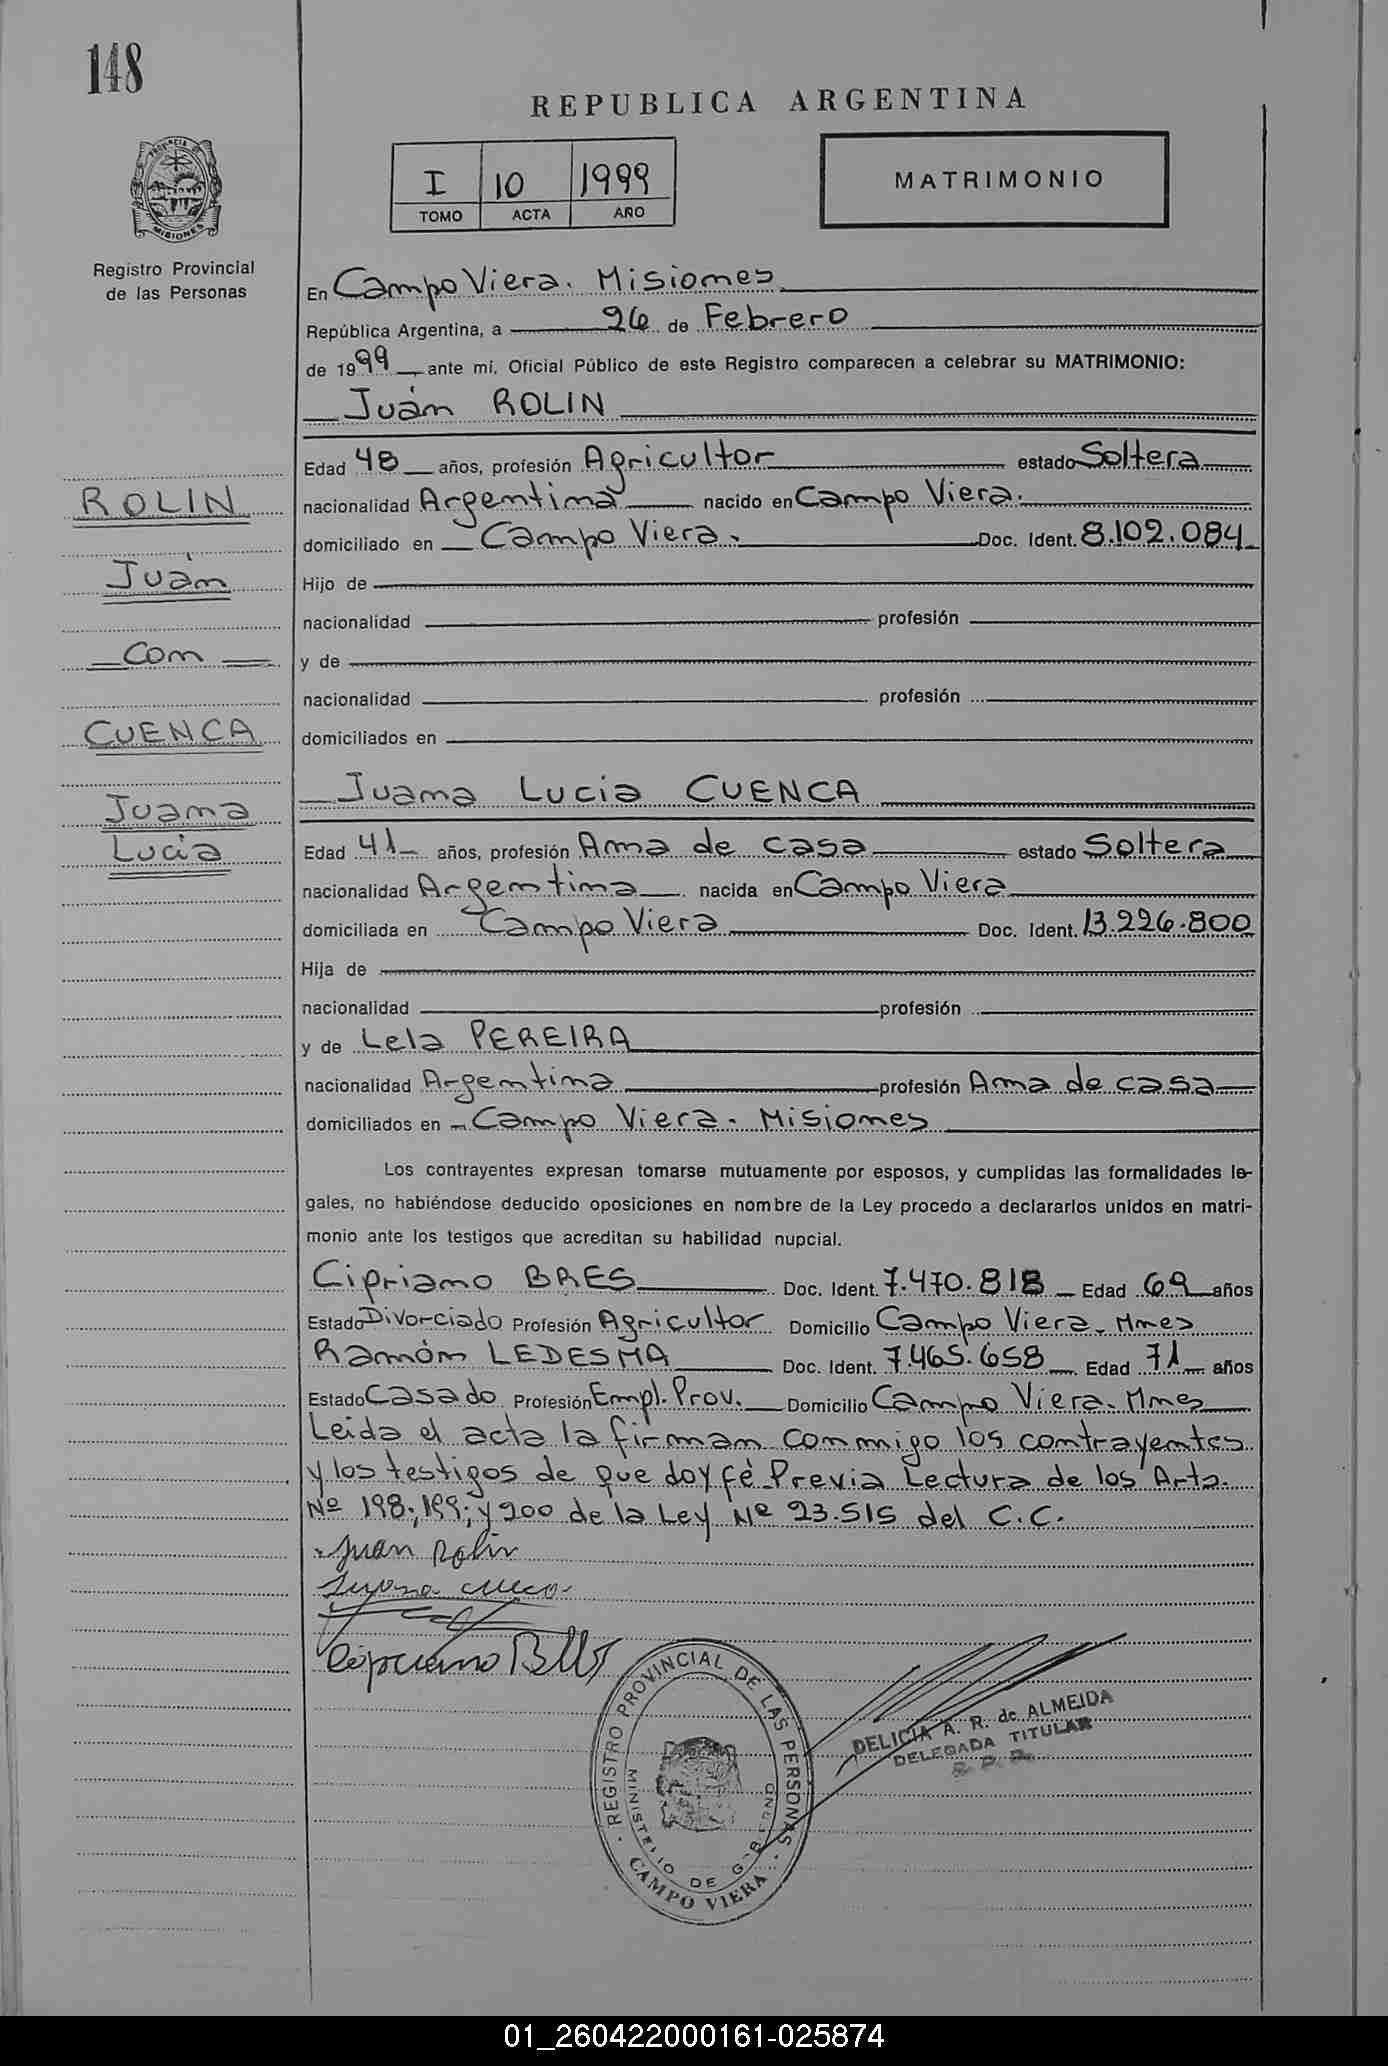 148
REPUBLICA ARGENTINA
PROVINCIA DE
MISIONES
Registro Provincial
de las Personas
I 10 1999
TOMO ACTA AÑO
MATRIMONIO
En Campo Viera. Misiones
República Argentina, a 26 de Febrero
de 1999, ante mí, Oficial Público de este Registro comparecen a celebrar su MATRIMONIO:
Juán ROLIN
Edad 48 años, profesión Agricultor estado Soltera
nacionalidad Argentina nacido en Campo Viera.
domiciliado en Campo Viera. Doc. Ident. 8.102.084
Hijo de
nacionalidad profesión
y de
nacionalidad profesión
domiciliados en
ROLIN
Juán
Con
CUENCA
Juana
Lucia
Juana Lucia CUENCA
Edad 41 años, profesión Ama de casa estado Soltera
nacionalidad Argentina nacida en Campo Viera
domiciliada en Campo Viera Doc. Ident. 13.226.800
Hija de
nacionalidad profesión
y de Lela PEREIRA
nacionalidad Argentina profesión Ama de casa
domiciliados en Campo Viera. Misiones
Los contrayentes expresan tomarse mutuamente por esposos, y cumplidas las formalidades le-
gales, no habiéndose deducido oposiciones en nombre de la Ley procedo a declararlos unidos en matri-
monio ante los testigos que acreditan su habilidad nupcial.
Cipriano BRES Doc. Ident. 7.470.818 Edad 69 años
Estado Divorciado Profesión Agricultor Domicilio Campo Viera. Mnes
Ramón LEDESMA Doc. Ident. 7.465.658 Edad 71 años
Estado Casado Profesión Empl. Prov. Domicilio Campo Viera. Mnes
Leida el acta la firman conmigo los contrayentes
y los testigos de que doy fé. Previa Lectura de los Arts.
Nº 198; 199; y 200 de la Ley Nº 23.515 del C.C.
Juan Rolin
Cipriano
REGISTRO PROVINCIAL DE LAS PERSONAS
MINISTERIO DE GOBIERNO
CAMPO VIERA
DELICIA A. R. de ALMEIDA
DELEGADA TITULAR
01_260422000161-025874